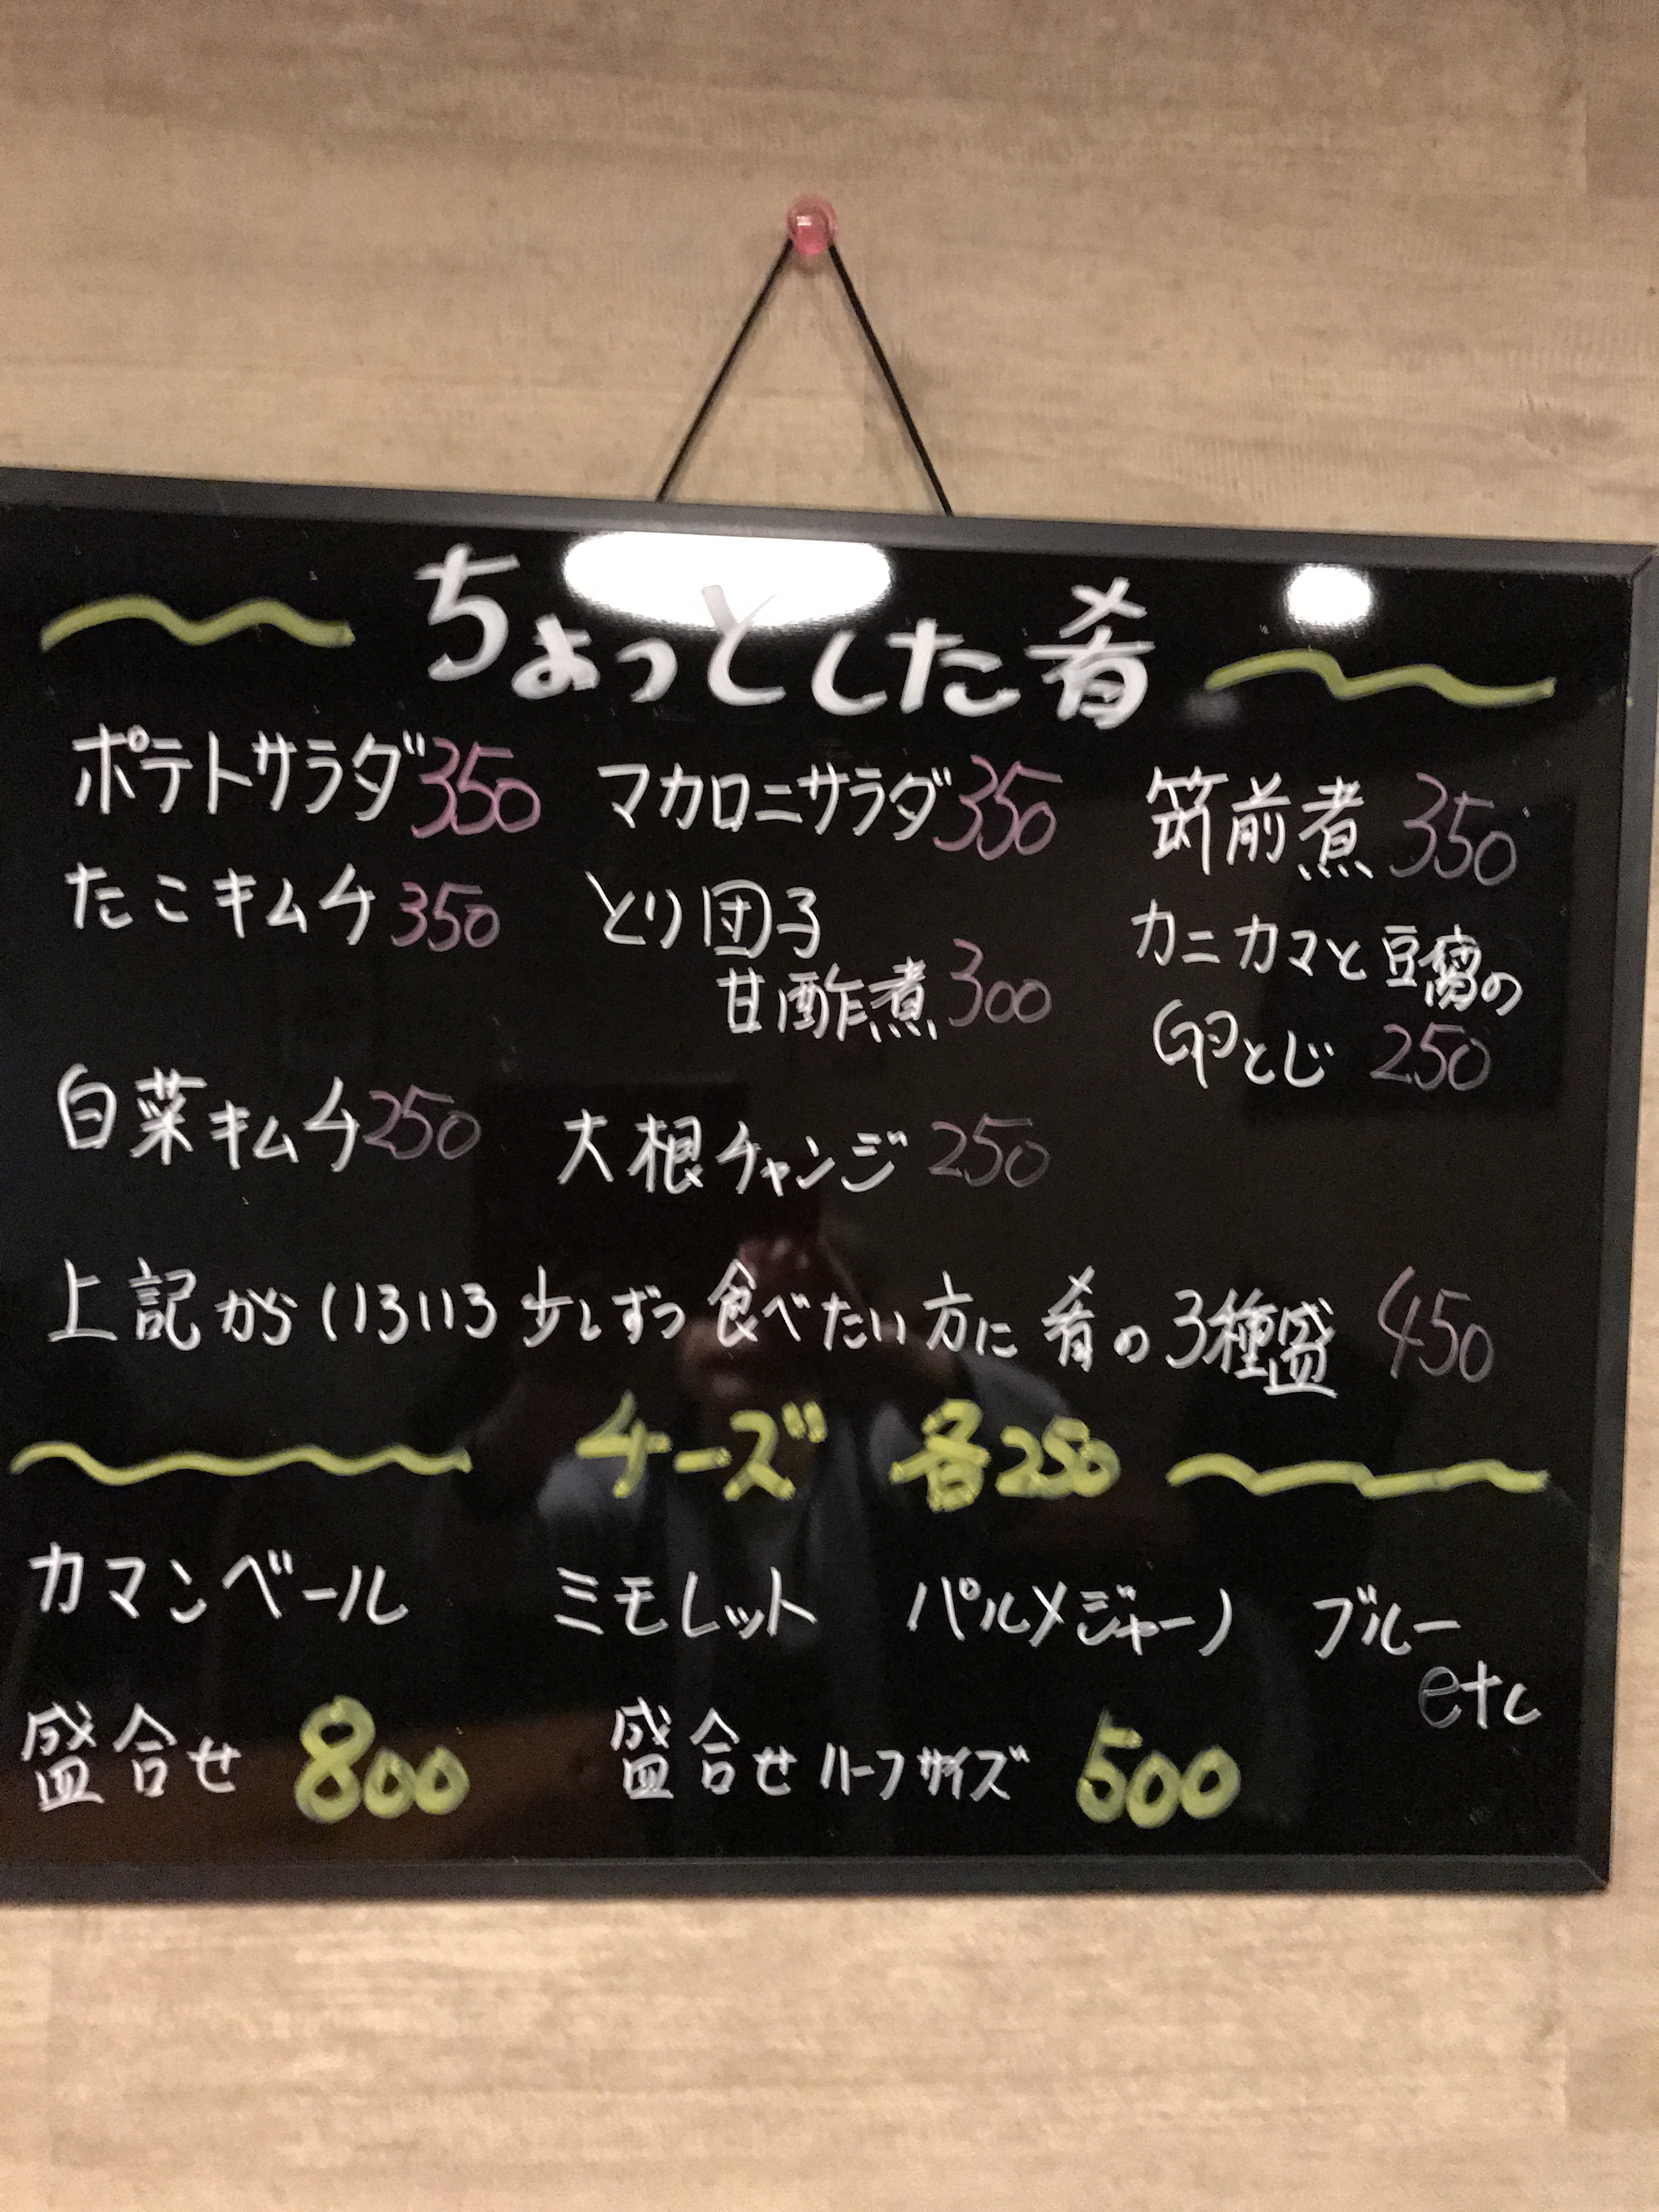 ちょっとした肴
ポテトサラダ350 マカロニサラダ350 筑前煮 350
たこキムチ350 とり団子 カニカマと豆腐の
甘酢煮300 卵とじ 250
白菜キムチ250 大根チャンジ 250
上記から いろいろ 少しずつ 食べたい 方に 肴の 3種盛 450
チーズ 各250
カマンベール ミモレット パルメジャーノ ブルー
etc
盛合せ 800 盛合せ ハーフサイズ 500